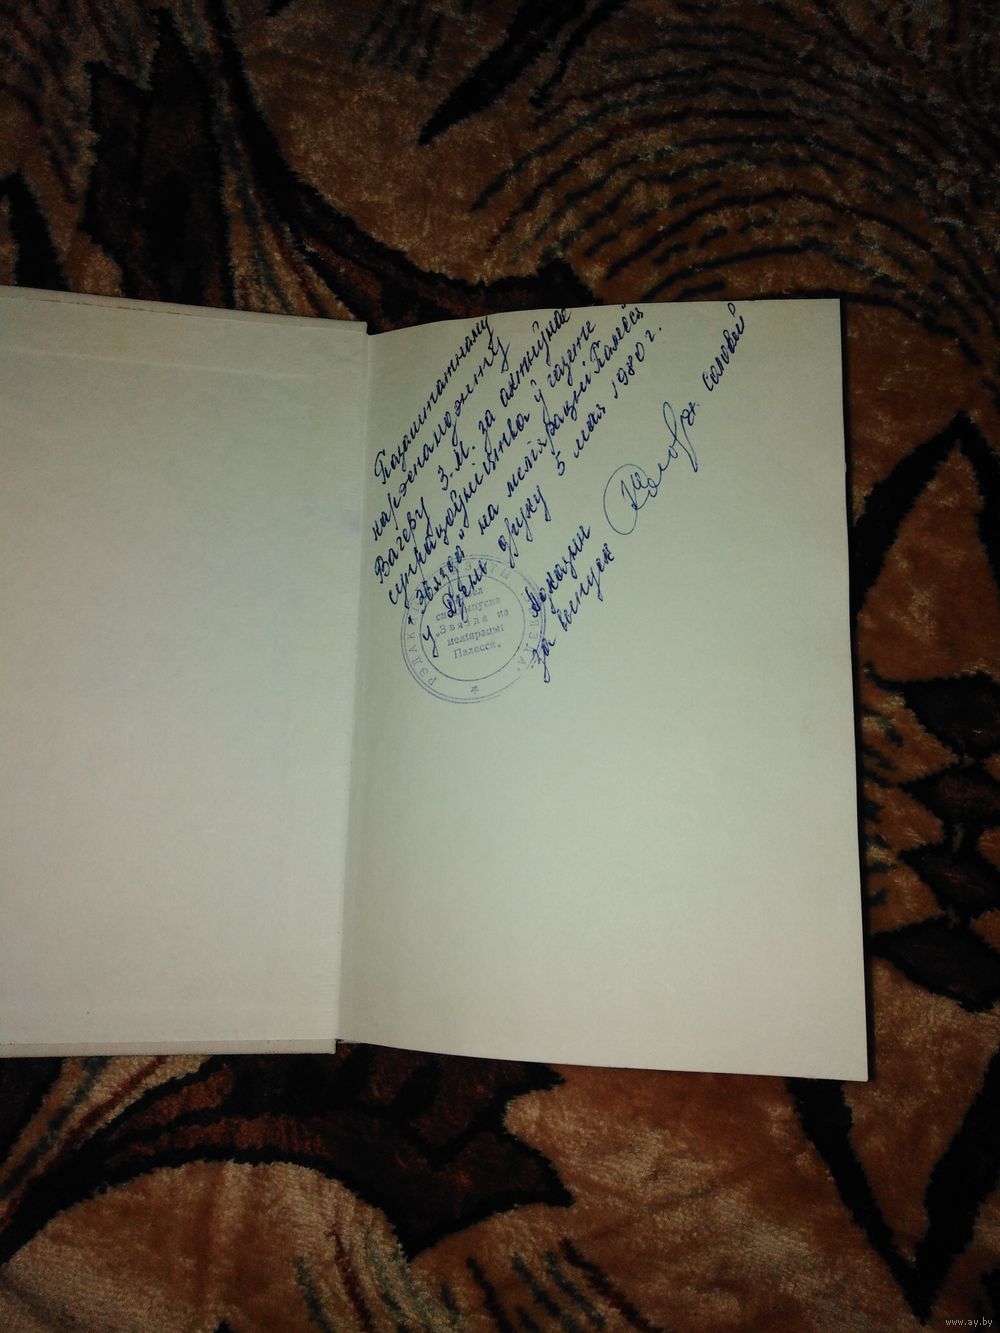 Пазаштатнаму
карэспандэнту
Вагеру З.М. за актыўнае
супрацоўніцтва ў газеце
"Звязда" на меліярацыі Палесся"
у Дзень друку 5 мая 1980 г.
за выпуск
Салавей
РЭДАК
спецвыпуска
„Звязда на
меліярацыі
Палесся„
www.ay.by